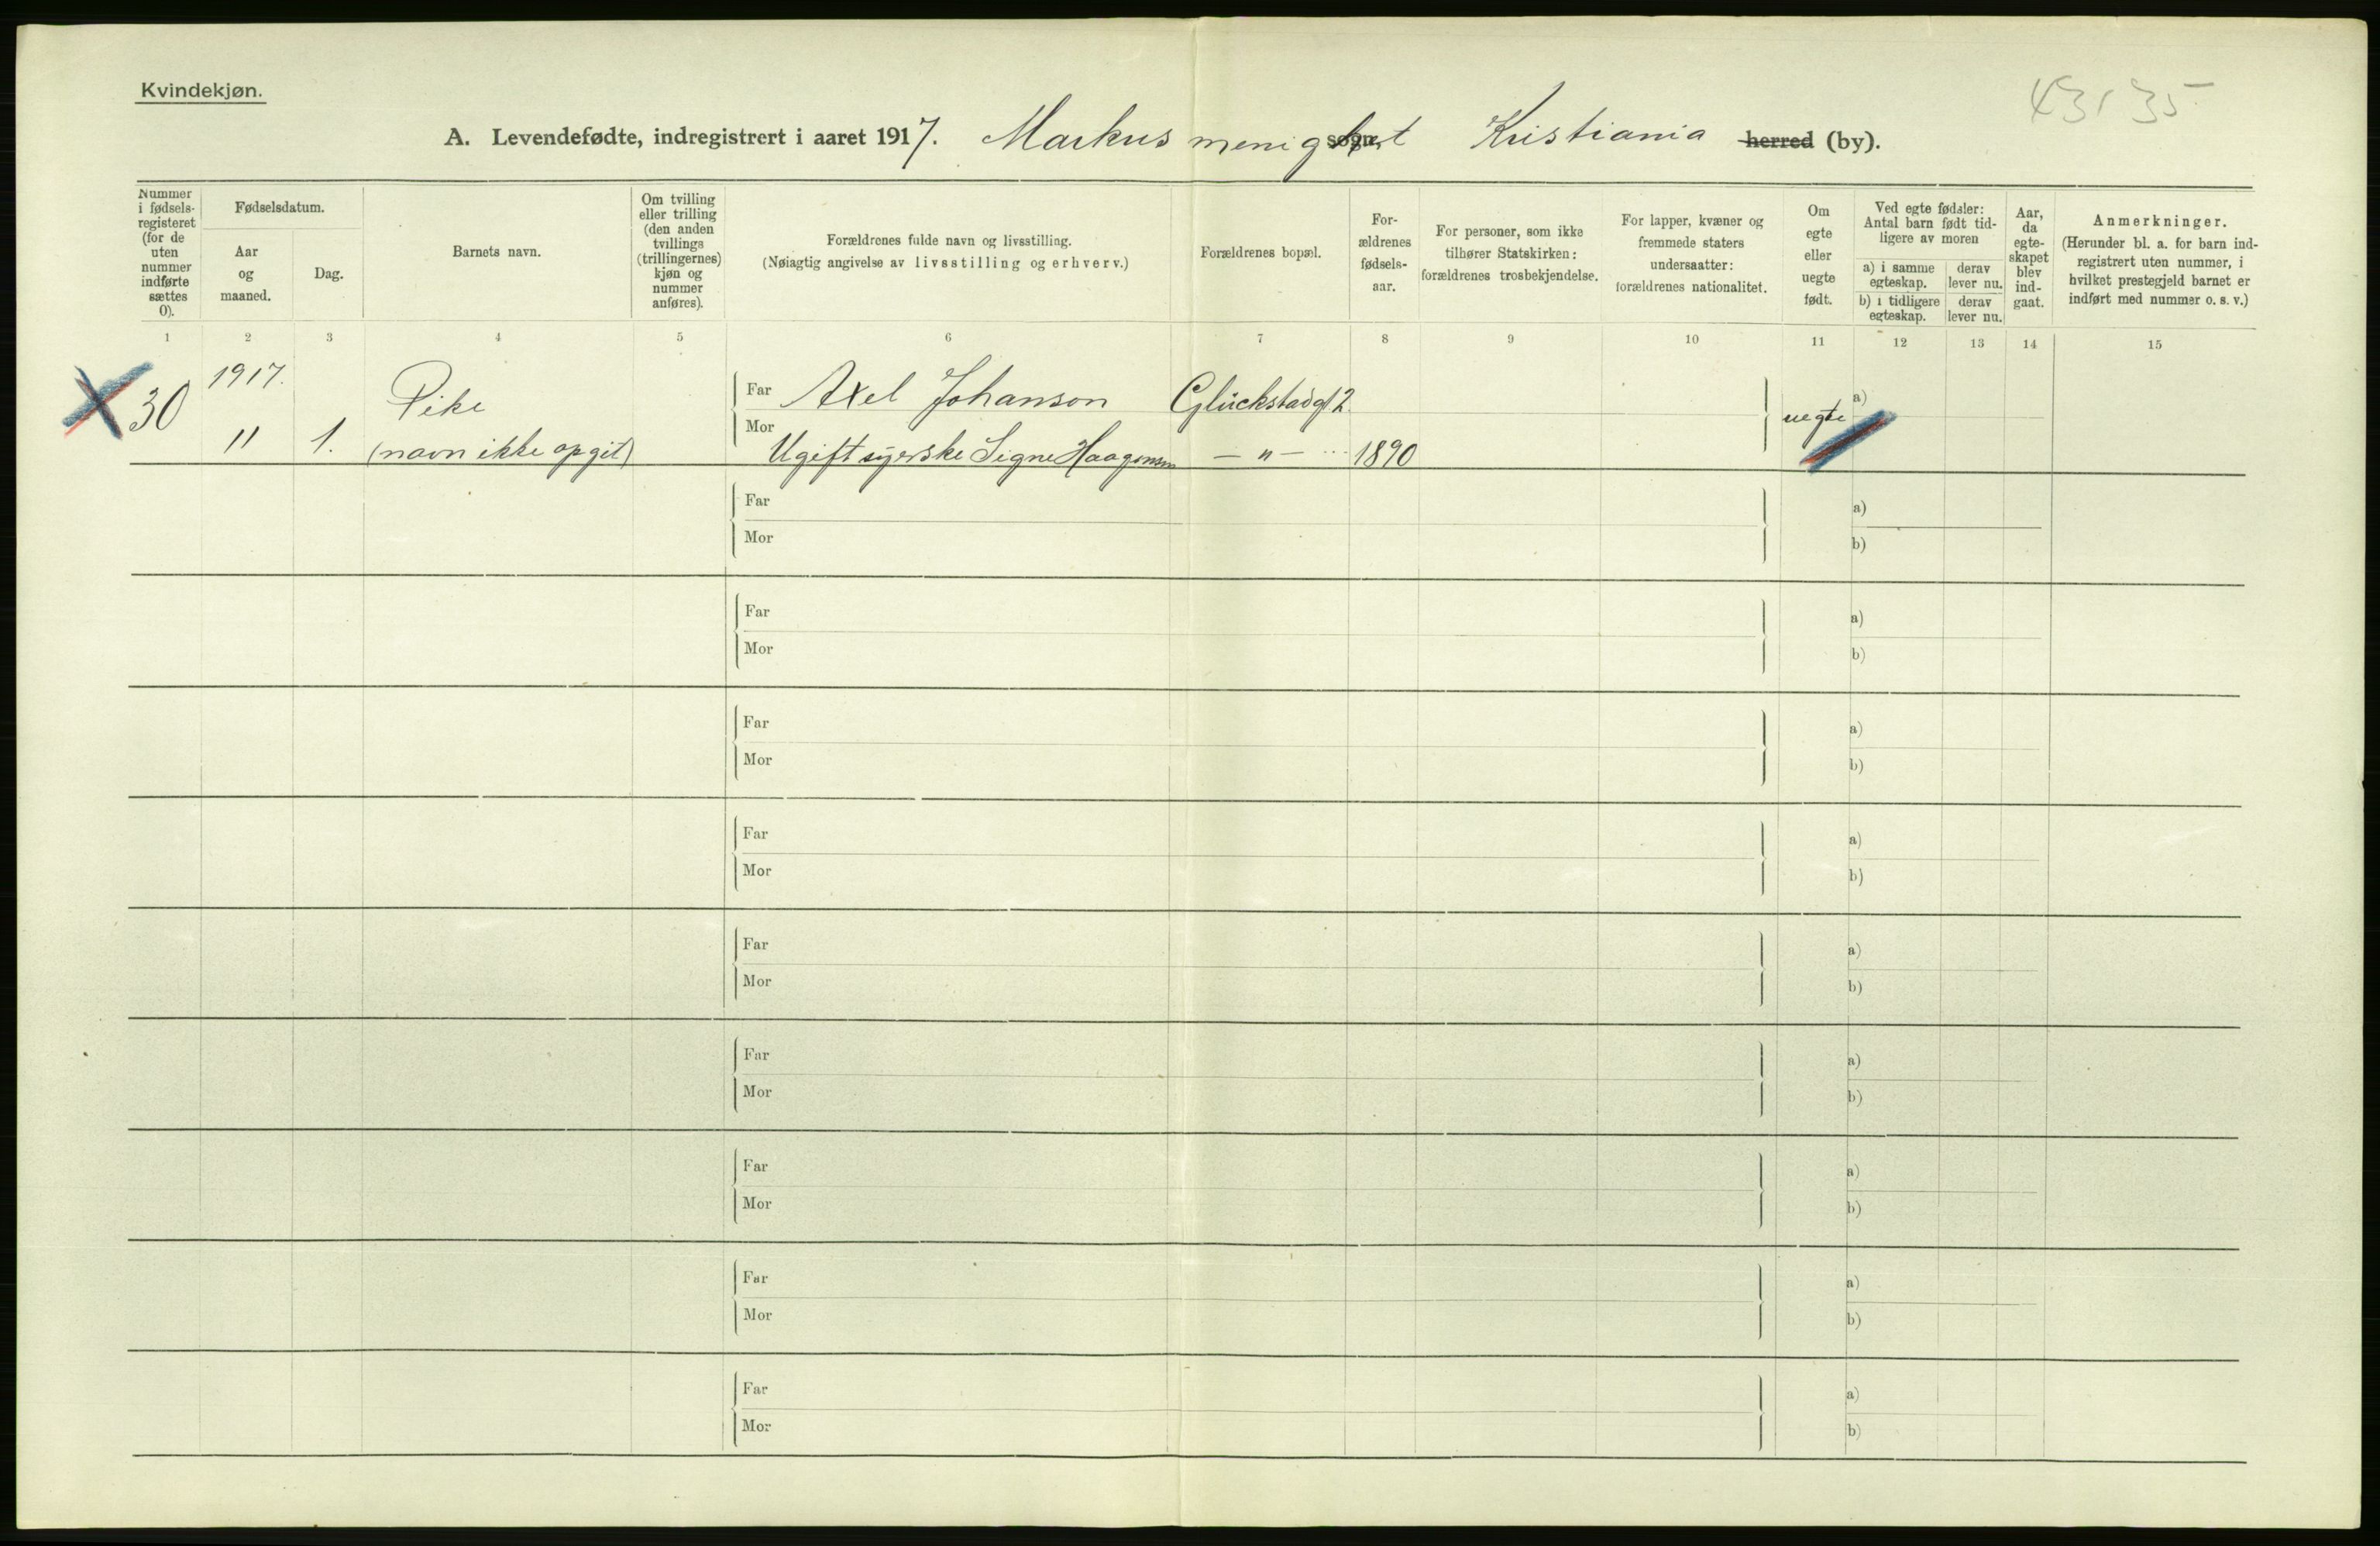 Kvindekjøn.
43135
A. Levendefødte, indregistrert i aaret 1917. Markus menighet sogn, Kristiania herred (by).
Nummer i fødsels-registeret (for de uten nummer indførte sættes 0).
Fødselsdatum.
Aar og maaned.
Dag.
Barnets navn.
Om tvilling eller trilling (den anden tvillings (trillingernes) kjøn og nummer anføres).
Forældrenes fulde navn og livsstilling.
(Nøiagtig angivelse av livsstilling og erhverv.)
Forældrenes bopæl.
For-ældrenes fødsels-aar.
For personer, som ikke tilhører Statskirken: forældrenes trosbekjendelse.
For lapper, kvæner og fremmede staters undersaatter: forældrenes nationalitet.
Om egte eller uegte født.
Ved egte fødsler: Antal barn født tid-ligere av moren
a) i samme egteskap.
derav lever nu.
b) i tidligere egteskap.
derav lever nu.
Aar, da egte-skapet blev ind-gaat.
Anmerkninger.
(Herunder bl. a. for barn ind-registrert uten nummer, i hvilket prestegjeld barnet er indført med nummer o. s. v.)
1 2 3 4 5 6 7 8 9 10 11 12 13 14 15
30 1917. Pike Far Axel Johanson Glückstadgt 2. uegte a)
11 1. (navn ikke opgit) Mor Ugift syerske Signe Haagensen — " — 1890
Far a)
Mor b)
Far a)
Mor b)
Far a)
Mor b)
Far a)
Mor b)
Far a)
Mor b)
Far a)
Mor b)
Far a)
Mor b)
Far a)
Mor b)
Far a)
Mor b)